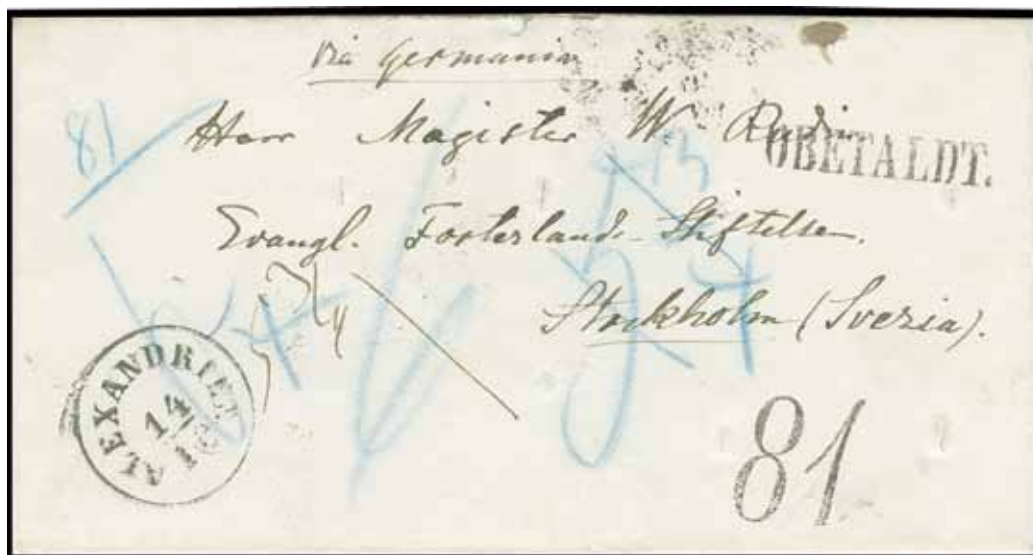 via Germania
81
Herr Magister W. Rudin
OBETALDT.
Evangl. Fosterlands-Stiftelsen.
Stockholm (Svezia).
ALEXANDRIEN
14
10
81